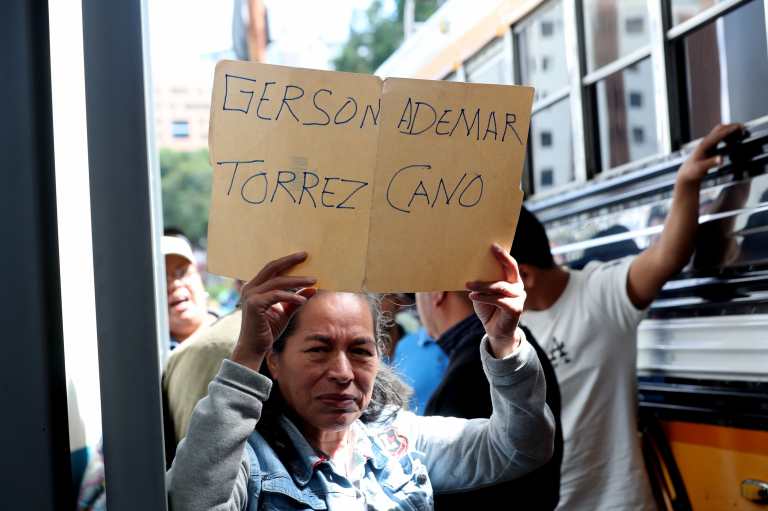 GERSON ADEMAR
TORREZ CANO